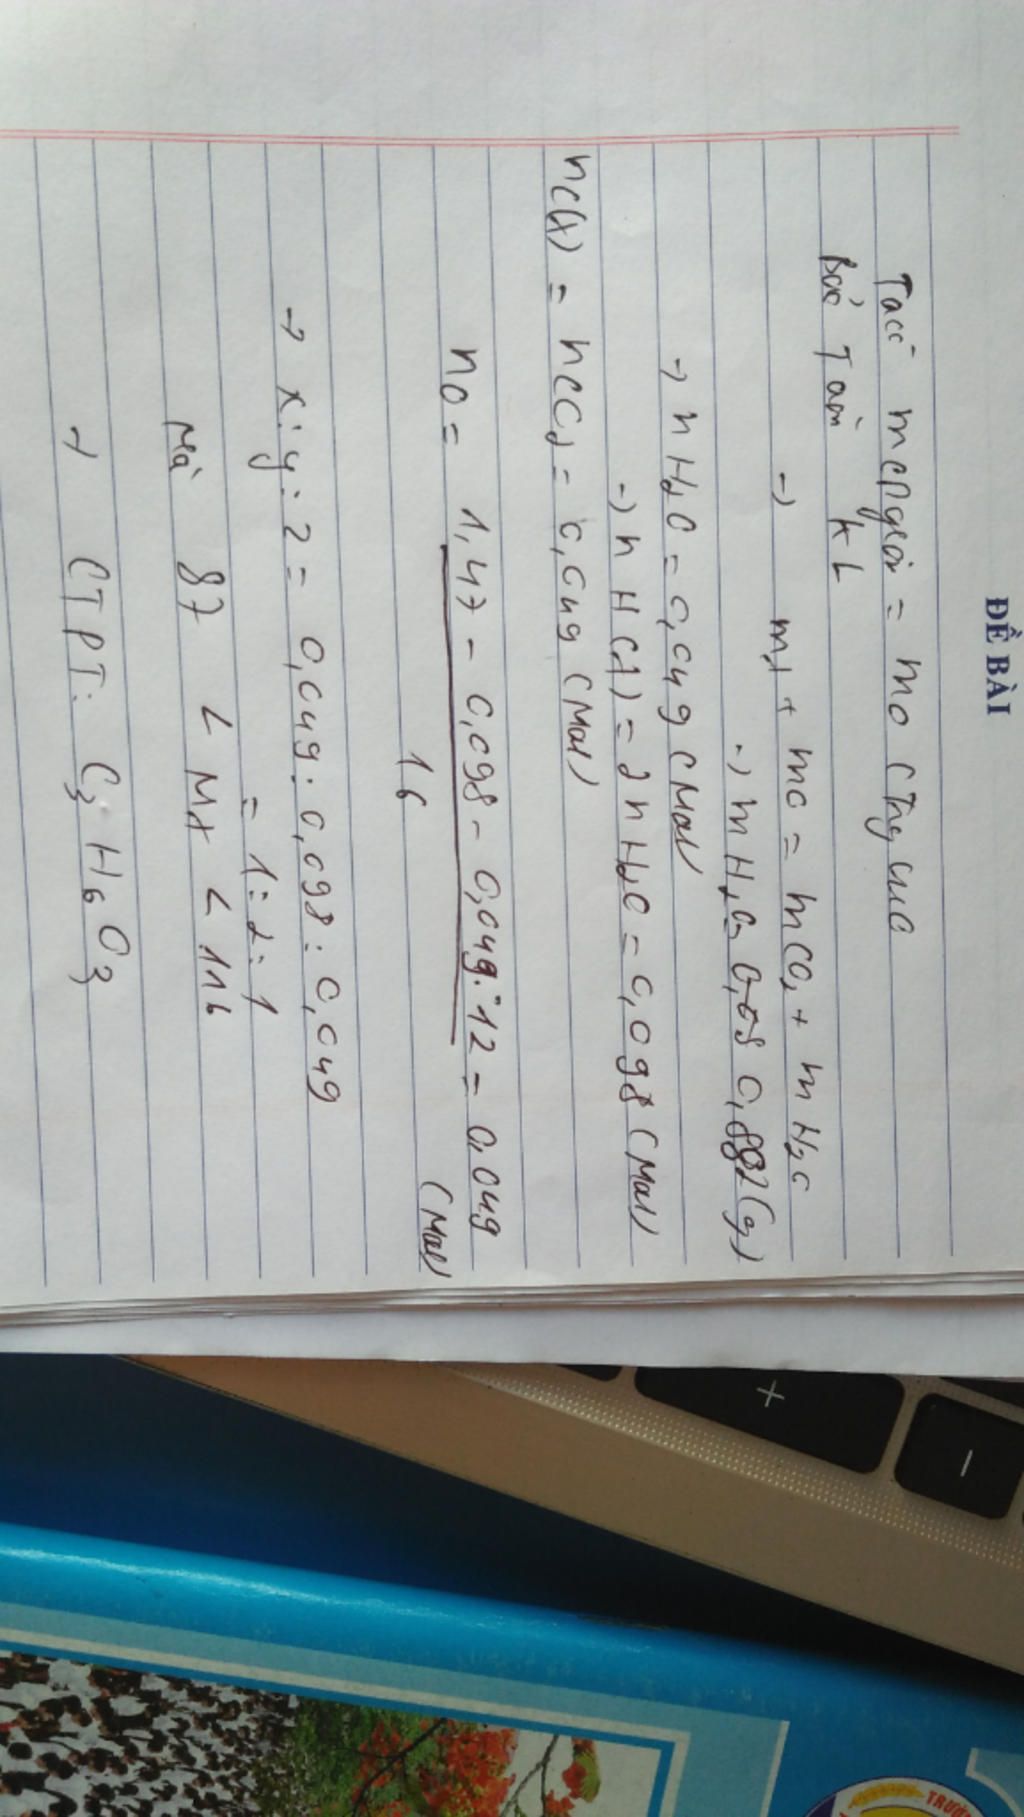 ĐỀ BÀI
Ta có mCR giảm = mO
Bảo Toàn KL
→ m1 + mO = mCO2 + mH2O
→ mH2O = 0,882(g)
→ nH2O = 0,049 (Mol)
→ nH(A) = 2nH2O = 0,098 (Mol)
nC(A) = nCO2 = 0,049 (Mol)
nO = 1,47 - 0,098 - 0,049.12 = 0,049
16 (Mol)
→ x:y:2 = 0,049:0,098:0,049
= 1:2:1
Mà 87 < MA < 116
→ CTPT: C3H6O3
+
-
TRƯỜ